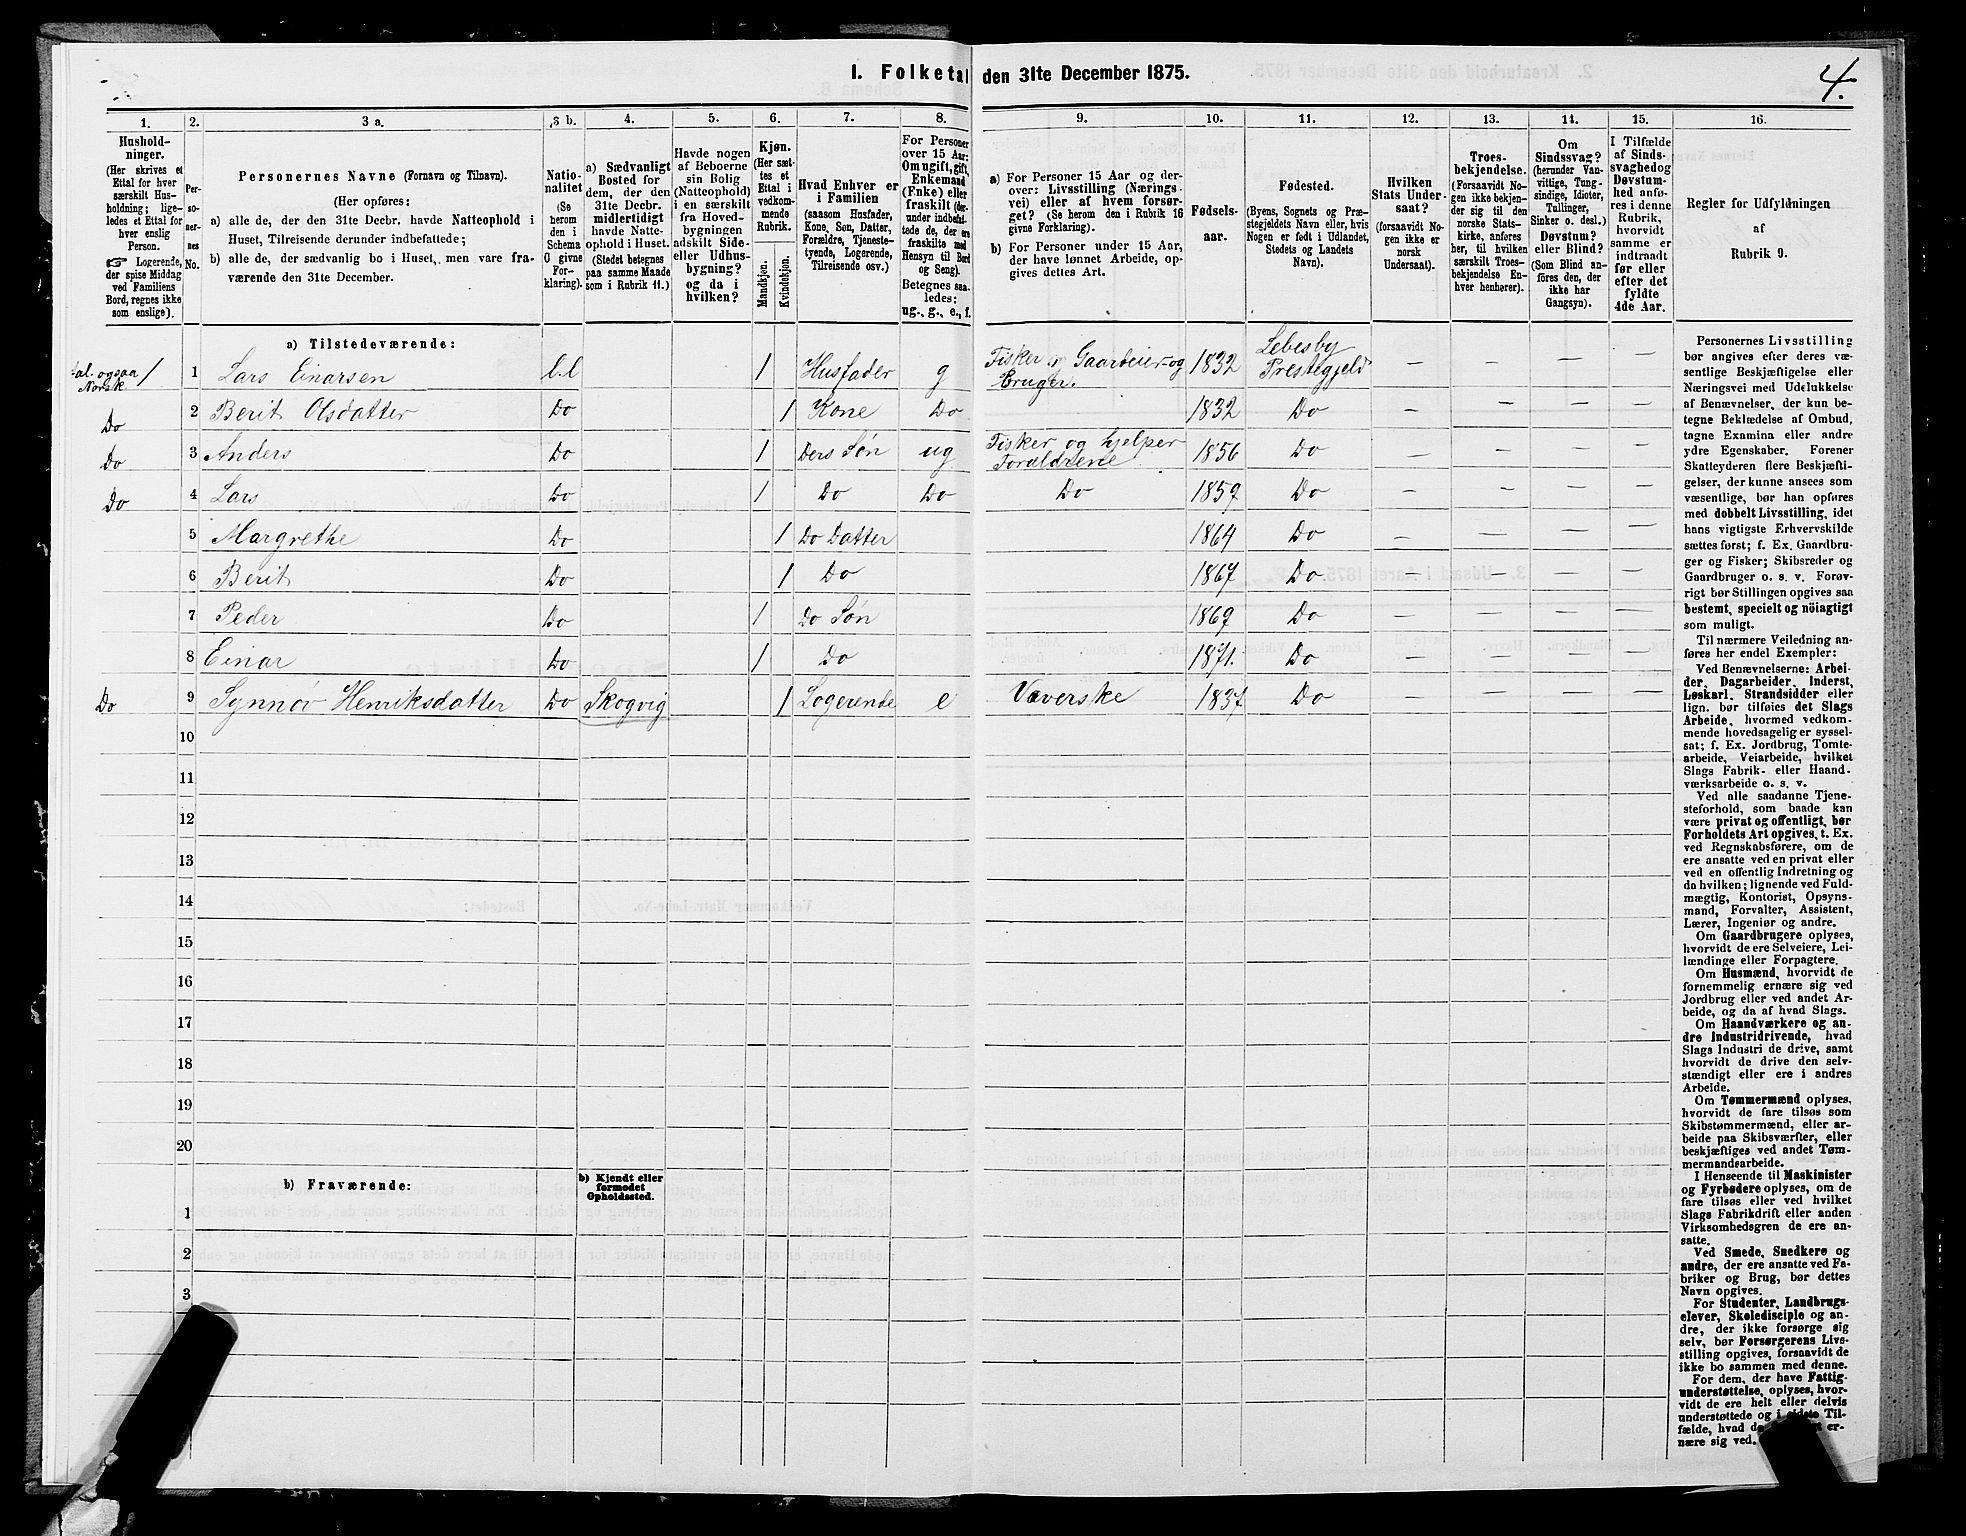 I. Folketal den 31te December 1875.
4.
1.
Hushold-
ninger.
(Her skrives et
Ettal for hver
særskilt Hus-
holdning; lige-
ledes et Ettal for
hver enslig
Person.
☞ Logerende,
der spise Middag
ved Familiens
Bord, regnes ikke
som enslige).
2.
Per-
so-
ner-
nes
No.
3 a.
Personernes Navne (Fornavn og Tilnavn).
(Her opføres:
a) alle de, der den 31te Decbr. havde Natteophold i
Huset, Tilreisende derunder indbefattede;
b) alle de, der sædvanlig bo i Huset, men vare fra-
værende den 31te December.
3 b.
Natio-
nalitet
(Se
herom
den i
Schema
C givne
For-
klaring).
4.
a) Sædvanligt
Bosted for
dem, der den
31te Decbr.
midlertidigt
havde Natte-
ophold i Huset.
(Stedet betegnes
paa samme Maade
som i Rubrik 11.)
5.
Havde nogen
af Beboerne
sin Bolig
(Natteophold)
i en særskilt
fra Hoved-
bygningen
adskilt Side-
eller Udhus-
bygning?
og da i
hvilken?
6.
Kjøn.
(Her sæt-
tes et
Ettal i
vedkom-
mende
Rubrik.
Mandkjøn.
Kvindekjøn.
7.
Hvad Enhver er
i Familien
(saasom Husfader,
Kone, Søn, Datter,
Forældre, Tjeneste-
tyende, Logerende,
Tilreisende osv.)
8.
For Personer
over 15 Aar:
Om ugift, gift,
Enkemand
(Enke) eller
fraskilt (der-
under indbefat-
tede de, der ere
fraskilte med
Hensyn til Bord
og Seng).
Betegnes saa-
ledes:
ug., g., e., f.
9.
a) For Personer 15 Aar og der-
over: Livsstilling (Nærings-
vei) eller af hvem forsør-
get? (Se herom den i Rubrik 16
givne Forklaring).
b) For Personer under 15 Aar,
der have lønnet Arbeide, op-
gives dettes Art.
10.
Fødsels-
aar.
11.
Fødested.
(Byens, Sognets og Præ-
stegjeldets Navn eller, hvis
Nogen er født i Udlandet,
Stedets og Landets
Navn).
12.
Hvilken
Stats Under-
saat?
(forsaavidt No-
gen ikke er
norsk
Undersaat).
13.
Troes-
bekjendelse.
(Forsaavidt No-
gen ikke bekjen-
der sig til den
norske Stats-
kirke, anføres
her, til hvilken
særskilt Troes-
bekjendelse En-
hver henhører).
14.
Om
Sindssvag?
(herunder Van-
vittige, Tung-
sindige, Idioter,
Tullinger,
Sinker o. desl.)
Døvstum?
eller Blind?
(Som Blind an-
føres den, der
ikke har
Gangsyn).
15.
I Tilfælde
af Sinds-
svaghed og
Døvstum-
hed anfø-
res i denne
Rubrik,
hvorvidt
samme er
indtraadt
før eller
efter det
fyldte
4de Aar.
16.
Regler for Udfyldningen
af
Rubrik 9.
a) Tilstedeværende:
tal. ogsaa Norsk 1 1 Lars Einarsen l.l 1 Husfader g Fisker og Gaardeier og Bruger. 1832 Lebesby Prestegjeld — — — —
Do 2 Berit Olsdatter Do 1 Kone Do 1832 Do — — — —
Do 3 Anders Do 1 Ders Søn ug Fisker og hjelper Forældrene 1856 Do — — — —
Do 4 Lars Do 1 Do Do Do 1859 Do — — — —
5 Margrethe Do 1 Do Datter 1864 Do — — — —
6 Berit Do 1 Do 1867 Do — — — —
7 Peder Do 1 Do Søn 1869 Do — — — —
8 Einar Do 1 Do 1871. Do — — — —
Do 9 Synnøv Henriksdatter Do Skogvig 1 Logerende e Væverske 1837 Do — — — —
10
11
12
13
14
15
16
17
18
19
20
b) Fraværende:
b) Kjendt eller
formodet
Opholdssted.
1
2
3
Personernes Livsstilling
bør angives efter deres væ-
sentlige Beskjæftigelse eller
Næringsvei med Udelukkelse
af Benævnelser, der kun be-
tegne Beklædelse af Ombud,
tagne Examina eller andre
ydre Egenskaber. Forener
Skatteyderen flere Beskjæfti-
gelser, der kunne ansees som
væsentlige, bør han opføres
med dobbelt Livsstilling, idet
hans vigtigste Erhvervskilde
sættes først; f. Ex. Gaardbru-
ger og Fisker; Skibsreder og
Gaardbruger o. s. v. Forøv-
rigt bør Stillingen opgives saa
bestemt, specielt og nöiagtigt
som muligt.
Til nærmere Veiledning an-
føres her endel Exempler:
Ved Benævnelserne: Arbei-
der, Dagarbeider, Inderst,
Løskarl, Strandsidder eller
lign. bør tilføies det Slags
Arbeide, hvormed vedkom-
mende hovedsagelig er syssel-
sat; f. Ex. Jordbrug, Tomte-
arbeide, Veiarbeide, hvilket
Slags Fabrik- eller Haand-
værksarbeide o. s. v.
Ved alle saadanne Tjene-
steforhold, som baade kan
være privat og offentligt, bør
Forholdets Art opgives, t. Ex.
ved Regnskabsførere, om de
ere ansatte ved en privat eller
ved en offentlig Indretning og
da hvilken; lignende ved Fuld-
mægtig, Kontorist, Opsyns-
mand, Forvalter, Assistent,
Lærer, Ingeniør og andre.
Om Gaardbrugere oplyses,
hvorvidt de ere Selveiere, Lei-
lændinge eller Forpagtere.
Om Husmænd, hvorvidt de
fornemmelig ernære sig ved
Jordbrug eller ved andet Ar-
beide, og da af hvad Slags.
Om Haandværkere og an-
dre Industridrivende, hvad
Slags Industri de drive, samt
hvorvidt de drive den selv-
stændigt eller ere i andres
Arbeide.
Om Tømmermænd oplyses,
hvorvidt de fare tilsøs som
Skibstømmermænd, eller ar-
beide paa Skibsværfter, eller
beskjæftiges ved andet Tøm-
mermandsarbeide.
I Henseende til Maskinister
og Fyrbødere oplyses, om de
fare tilsøs eller ved hvilket
Slags Fabrikdrift eller anden
Virksomhedsgren de ere an-
satte.
Ved Smede, Snedkere og
andre, der ere ansatte ved Fa-
briker og Brug, bør dettes
Navn opgives.
For Studenter, Landbrugs-
elever, Skoledisciple og an-
dre, der ikke forsørge sig
selv, bør Forsørgerens Livs-
stilling opgives, forsaavidt de
ikke bo sammen med denne.
For dem, der have Fattig-
understøttelse, oplyses, hvor-
vidt de ere helt eller delvis
understøttede og i sidste Til-
fælde, hvad de er-
nære sig ved.